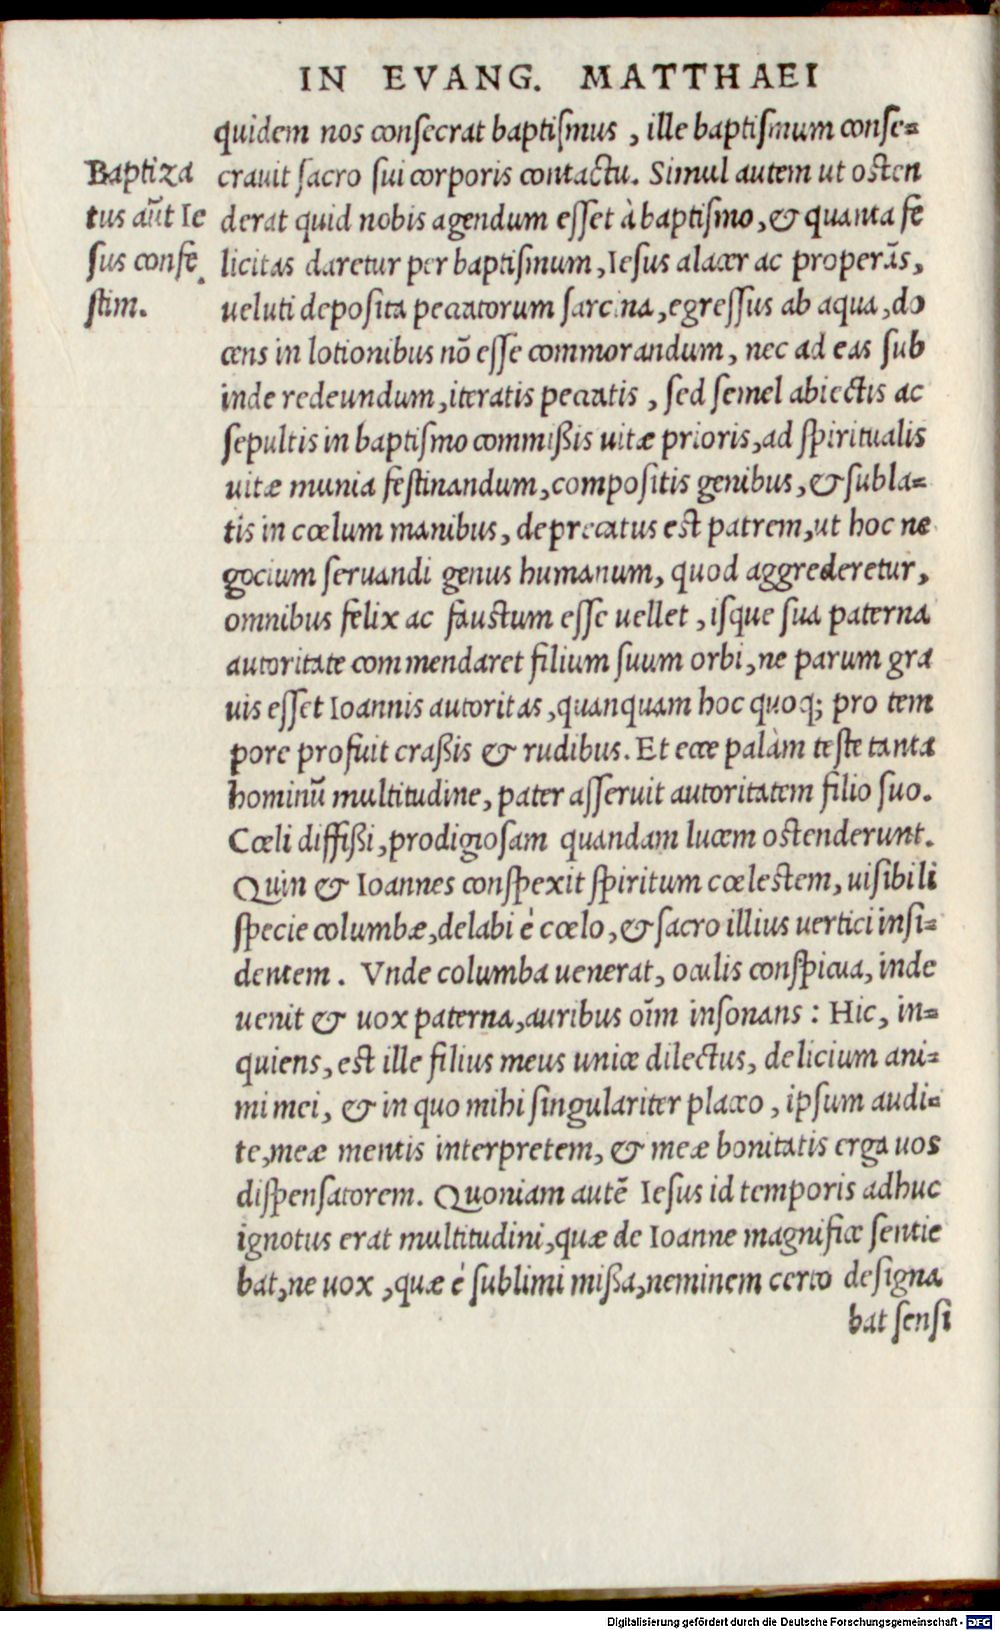 IN EVANG. MATTHAEI
quidem nos consecrat baptismus, ille baptismum conse=
crauit sacro sui corporis contactu. Simul autem ut osten
derat quid nobis agendum esset à baptismo, & quanta fe
licitas daretur per baptismum, Iesus alacer ac properãs,
ueluti deposita peccatorum sarcina, egressus ab aqua, do
cens in lotionibus nõ esse commorandum, nec ad eas sub
inde redeundum, iteratis peccatis, sed semel abiectis ac
sepultis in baptismo commißis uitæ prioris, ad spiritualis
uitæ munia festinandum, compositis genibus, & subla=
tis in cœlum manibus, deprecatus est patrem, ut hoc ne
gocium seruandi genus humanum, quod aggrederetur,
omnibus felix ac faustum esse uellet, isque sua paterna
autoritate commendaret filium suum orbi, ne parum gra
uis esset Ioannis autoritas, quanquam hoc quoq; pro tem
pore profuit craßis & rudibus. Et ecce palàm teste tanta
hominũ multitudine, pater asseruit autoritatem filio suo.
Cœli diffißi, prodigiosam quandam lucem ostenderunt.
Quin & Ioannes conspexit spiritum cœlestem, uisibili
specie columbæ, delabi è cœlo, & sacro illius uertici insi=
dentem. Vnde columba uenerat, oculis conspicua, inde
uenit & uox paterna, auribus oĩm insonans: Hic, in=
quiens, est ille filius meus unice dilectus, delicium ani=
mi mei, & in quo mihi singulariter placeo, ipsum audi=
te, meæ mentis interpretem, & meæ bonitatis erga uos
dispensatorem. Quoniam autẽ Iesus id temporis adhuc
ignotus erat multitudini, quæ de Ioanne magnifice sentie
bat, ne uox, quæ è sublimi mißa, neminem certo designa
bat sensi
Baptiza
tus aũt Ie
sus confe
stim.
Digitalisierung gefördert durch die Deutsche Forschungsgemeinschaft - DFG